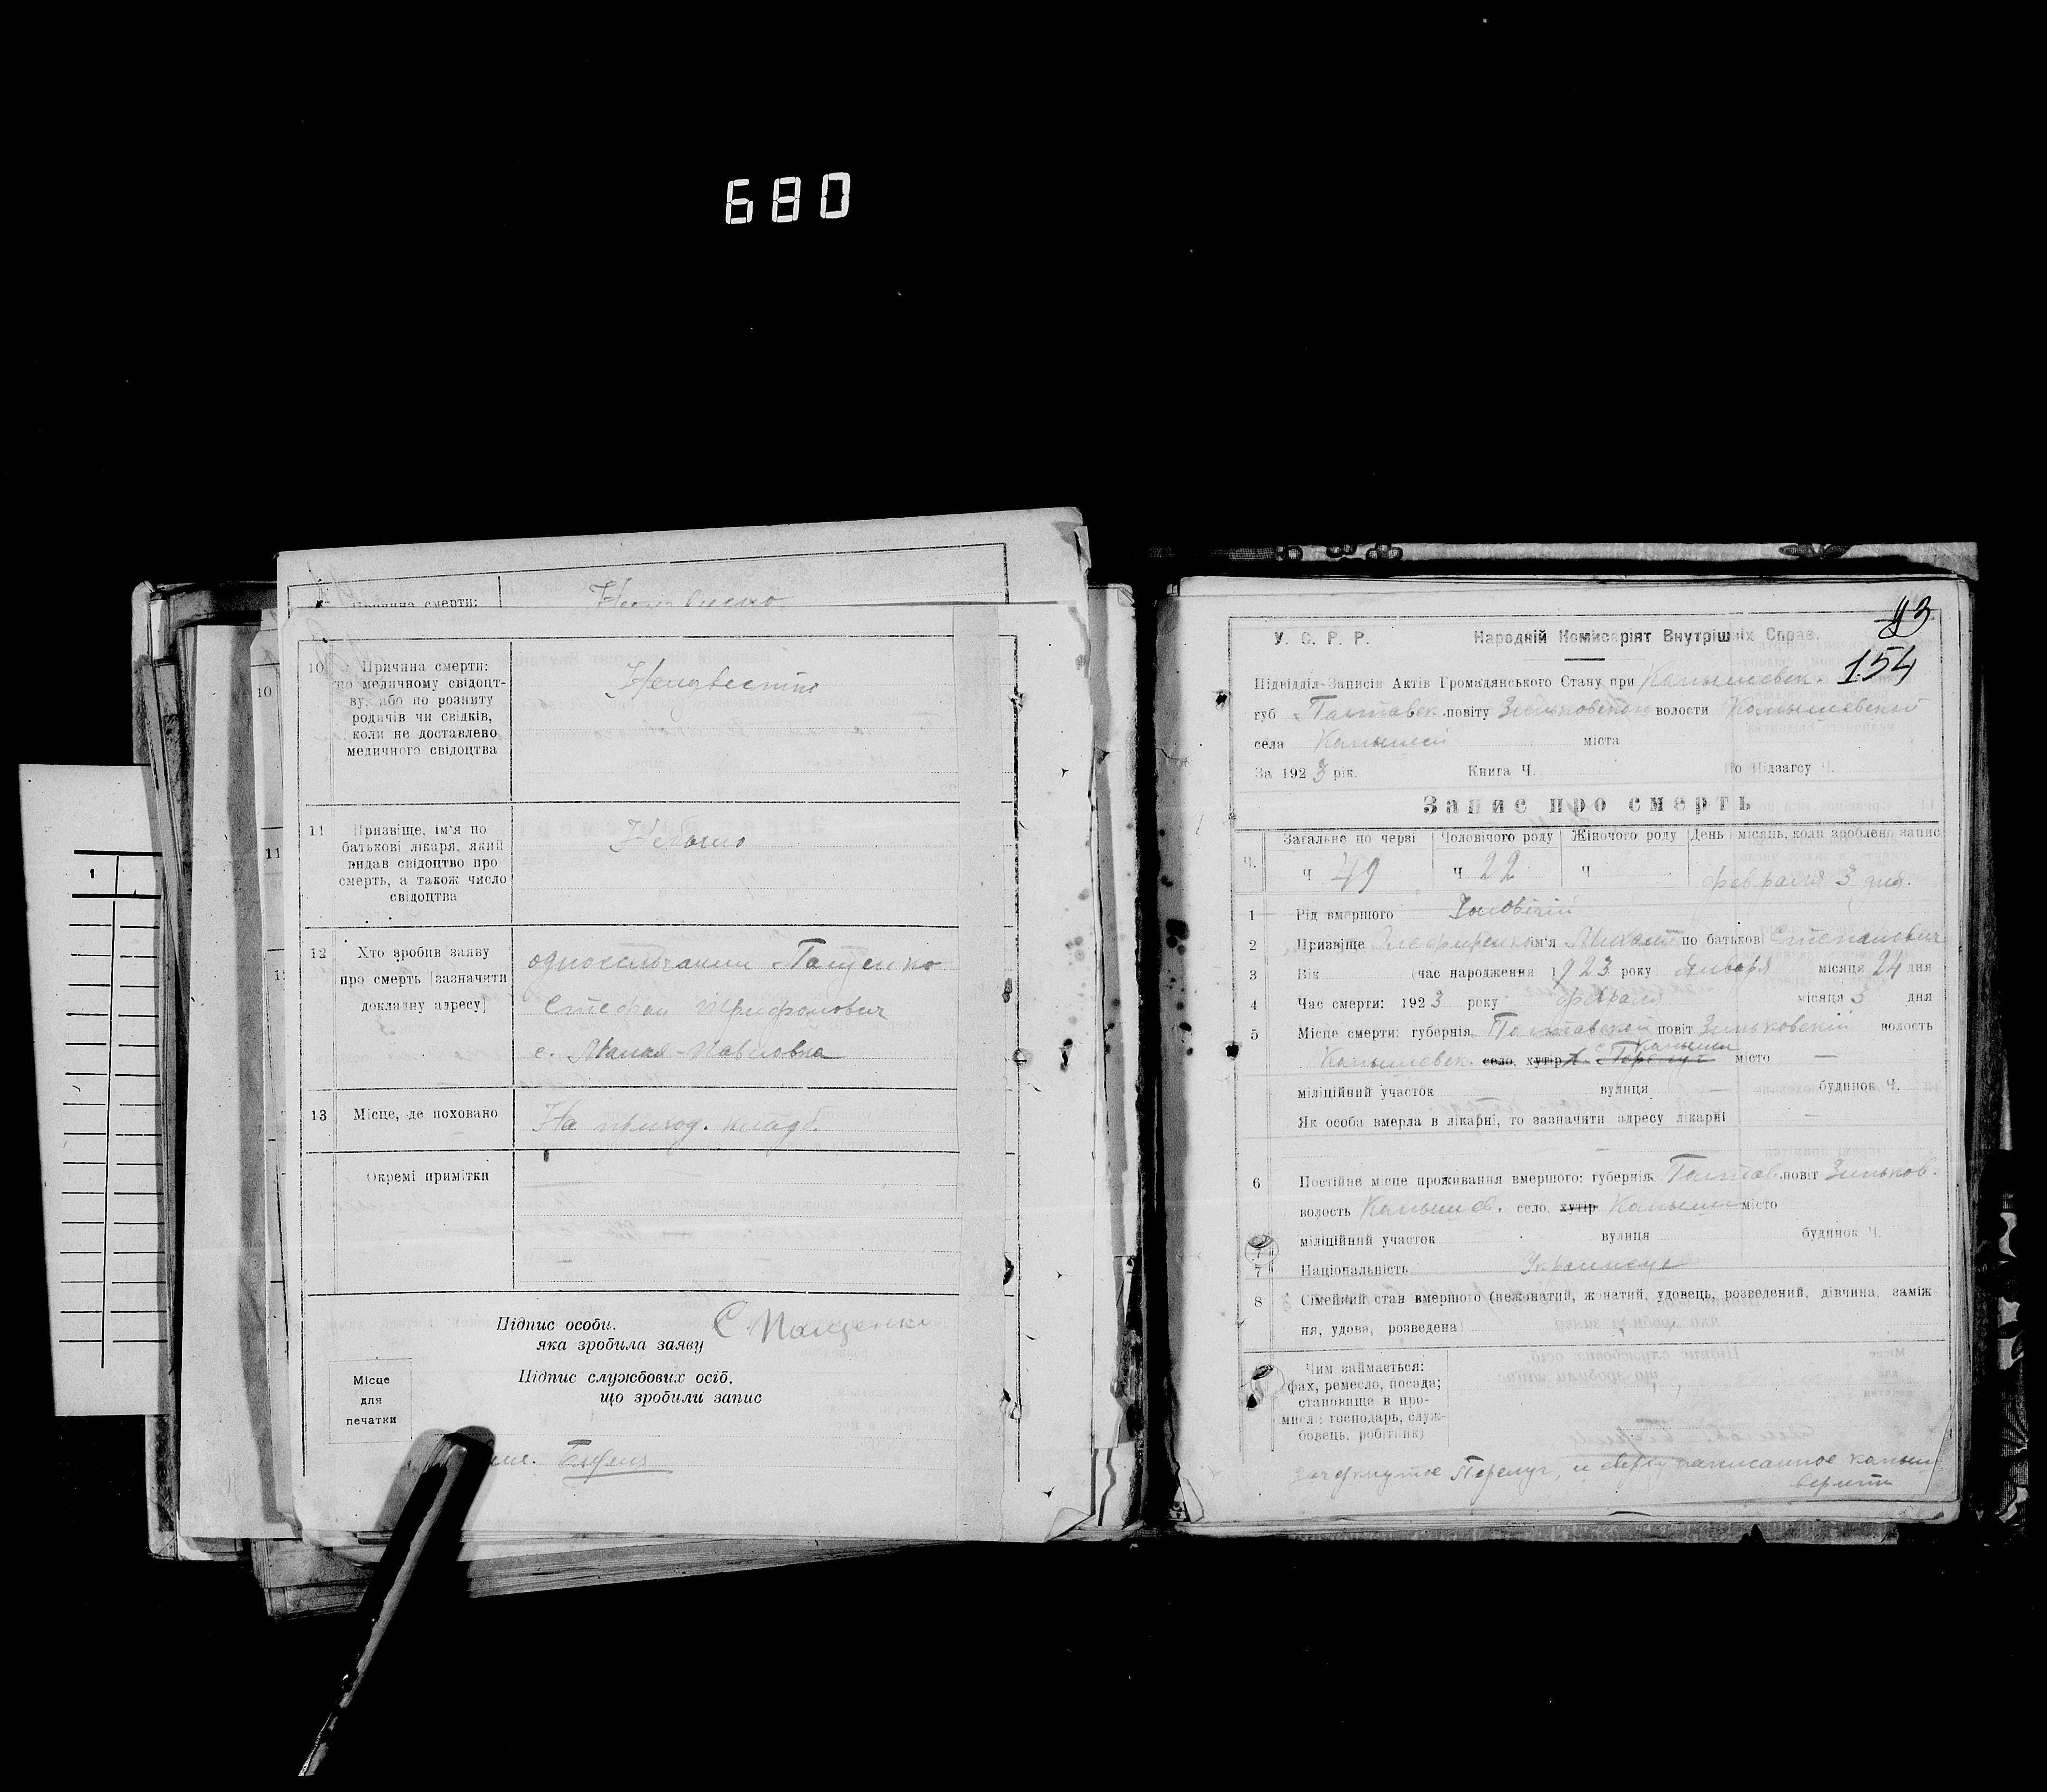 680
Причина смерти:
10
Причина смерти:
по медичному свідоцт-
ву, або по розпиту
родичів чи свідків,
коли не доставлено
медичного свідоцтва
Неизвестно
11
Призвіще, ім'я по
батькові лікаря, який
видав свідоцтво про
смерть, а також число
свідоцтва
Небыло
12
Хто зробив заяву
про смерть [зазначити
докладну адресу]
односельчанин Пащенко
Стефан Трифонович
с. Малая-Павловка
13
Місце, де поховано
На приход. кладб.
Окремі примітки
Підпис особи,
яка зробила заяву
С. Пащенко
Підпис службових осіб,
що зробили запис
Місце
для
печатки
10
11
1
43
154
У. С. Р. Р. Народній Комисаріят Внутрішніх Справ.
Підвідділ Записів Актів Громадянського Стану при Камышевск.
губ Полтавск. повіту Зиньковского волости Камышевской
села Камышей міста
За 1923 рік. Книга Ч. По Підзагсу Ч.
Запис про смерть
Ч. Загальне по черві Чоловічого роду Жіночого роду День і місяць, коли зроблено запис
Ч 49 Ч 22 Ч февраля 3 дня.
1 Рід вмершого Чоловічий
2 Призвіще ім'я Михаил по батькові Степанович
3 Вік (час народження 1923 року Января місяця 24 дня
4 Час смерти: 1923 року февраля місяця 3 дня
5 Місце смерти: губернія Полтавской повіт Зиньковский волость
Камышевск. село, хутір с. Камыши місто —
міліційний участок вулиця будинок Ч.
Як особа вмерла в лікарні, то зазначити адресу лікарні —
6 Постійне місце проживання вмершого: губернія Полтав. повіт Зиньков.
волость Камышев. село, хутір Камыши місто
міліційний участок вулиця будинок Ч.
7 Національність Украинец
8 Сімейний стан вмершого (нежонатий, жонатий, удовець, розведений, дівчина, заміж
ня, удова, розведена)
Чим займається:
фах, ремесло, посада;
становище в про-
мислі: господарь, служ-
бовець, робітник)
Зачеркнутое и сверху написанное камыши
верить